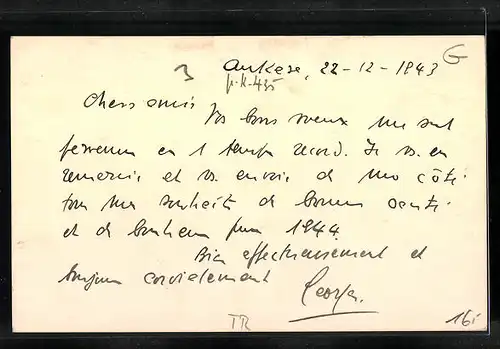 3 Ankara, 22-12-1943 G
p.k. 435
Chers amis
Vos bons voeux me sont
parvenus en 1 temps record. Je vs en
remercie et vs envoie de mon côté
tous mes souhaits de bonne santé
et de bonheur pour 1944.
Bien affectueusement et
toujours cordialement
Georges.
TR
16i